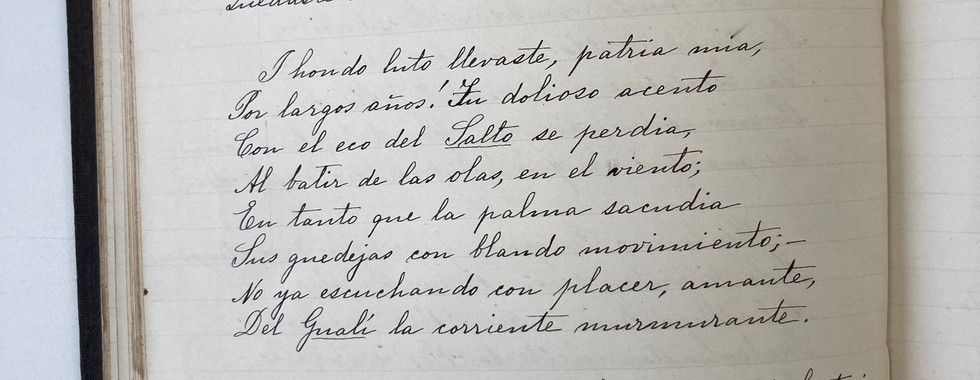 I hondo luto llevaste, patria mia,
Por largos años! Tu dolioso acento
Con el eco del Salto se perdia,
Al batir de las olas, en el viento;
En tanto que la palma sacudia
Sus guedejas con blando movimiento;—
No ya escuchando con placer, amante,
Del Gualí la corriente murmurante.